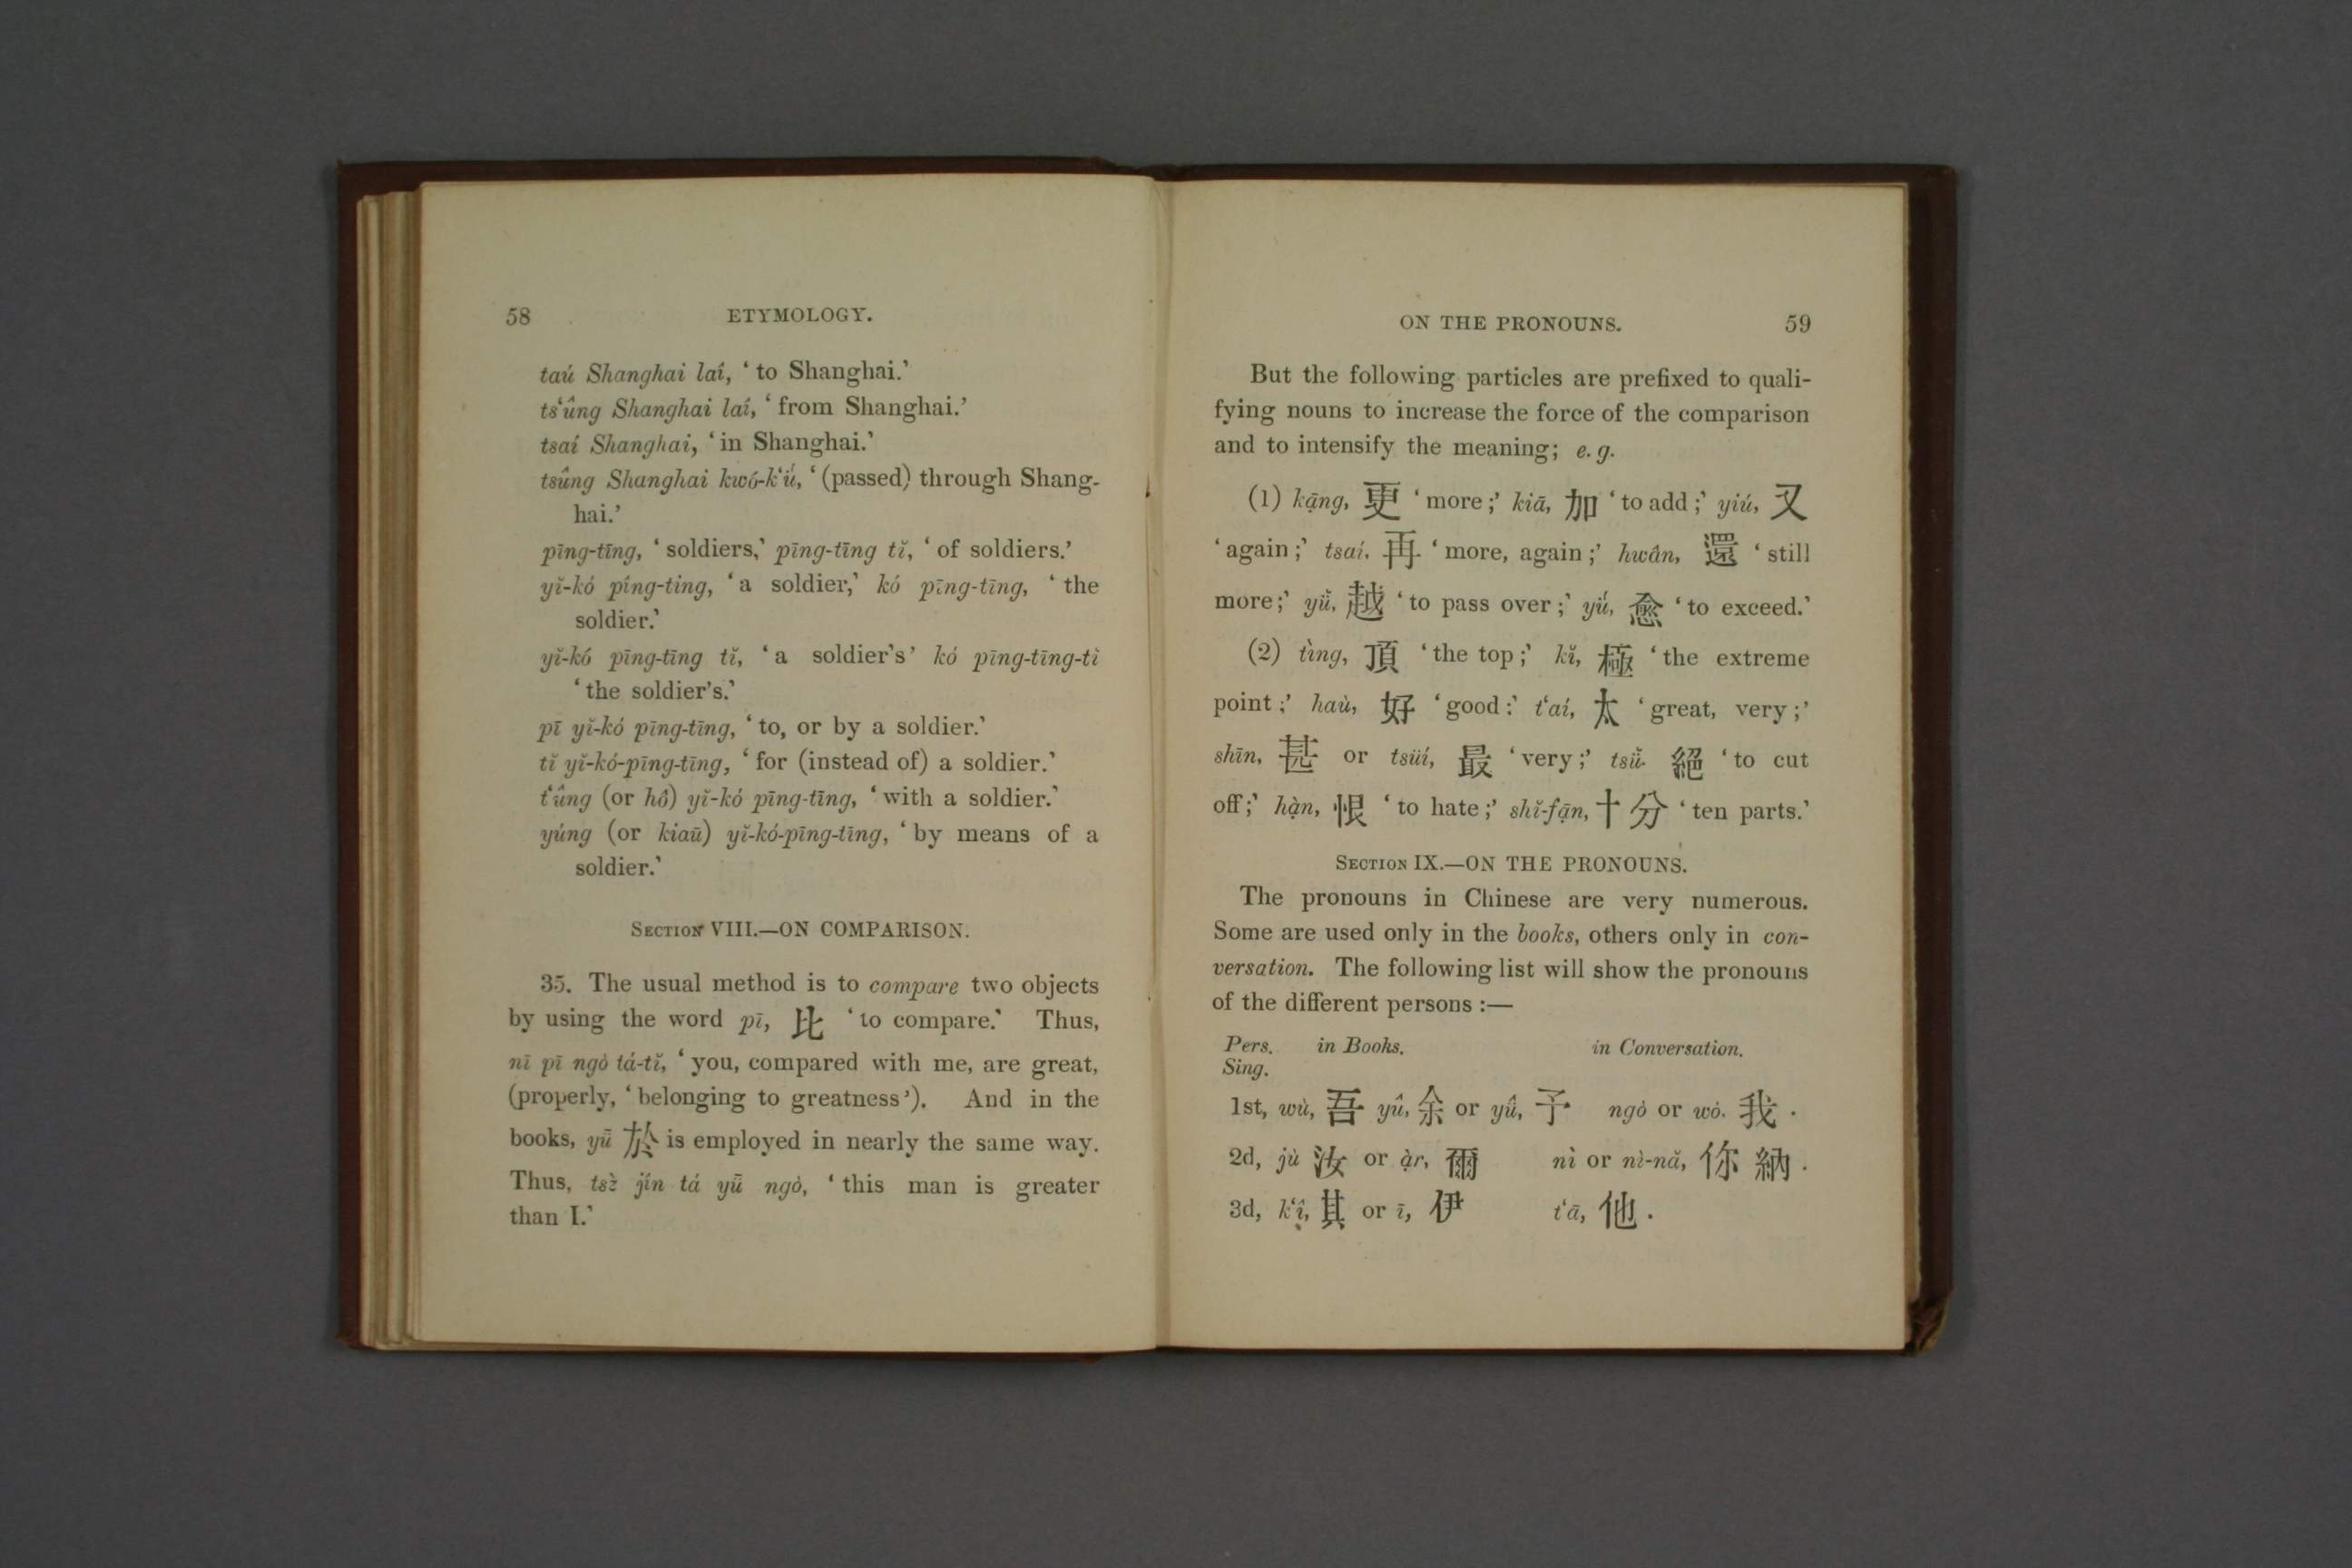 58 ETYMOLOGY.
taú Shanghai laí, ‘ to Shanghai.’
ts‘ûng Shanghai laí, ‘ from Shanghai.’
tsaí Shanghai, ‘ in Shanghai.’
tsûng Shanghai kwó-k‘ǘ, ‘ (passed) through Shang-
hai.’
pīng-tīng, ‘ soldiers,’ pīng-tīng tǐ, ‘ of soldiers.’
yǐ-kó píng-ting, ‘ a soldier,’ kó pīng-tīng, ‘ the
soldier.’
yǐ-kó pīng-tīng tǐ, ‘ a soldier's ’ kó pīng-tīng-tì
‘ the soldier's.’
pī yǐ-kó pīng-tīng, ‘ to, or by a soldier.’
tǐ yǐ-kó-pīng-tīng, ‘ for (instead of) a soldier.’
t‘ûng (or hô) yǐ-kó pīng-tīng, ‘ with a soldier.’
yúng (or kiaū) yǐ-kó-pīng-tīng, ‘ by means of a
soldier.’
Section VIII.—ON COMPARISON.
35. The usual method is to compare two objects
by using the word pī, 比 ‘ to compare.’ Thus,
nī pī ngò tá-tǐ, ‘ you, compared with me, are great,
(properly, ‘ belonging to greatness’). And in the
books, yǖ 於 is employed in nearly the same way.
Thus, tsż jín tá yǖ ngò, ‘ this man is greater
than I.’
ON THE PRONOUNS. 59
But the following particles are prefixed to quali-
fying nouns to increase the force of the comparison
and to intensify the meaning; e. g.
(1) kạ̄ng, 更 ‘ more ;’ kiā, 加 ‘ to add ;’ yiú, 又
‘ again ;’ tsaí, 再 ‘ more, again ;’ hwân, 還 ‘ still
more;’ yǚ, 越 ‘ to pass over ;’ yǘ, 愈 ‘ to exceed.’
(2) tìng, 頂 ‘ the top ;’ kǐ, 極 ‘ the extreme
point ;’ haù, 好 ‘ good :’ t‘aí, 太 ‘ great, very ;’
shīn, 甚 or tsüí, 最 ‘ very ;’ tsǚ 絕 ‘ to cut
off ;’ hạ̀n, 恨 ‘ to hate ;’ shǐ-fạ̄n, 十 分 ‘ ten parts.’
Section IX.—ON THE PRONOUNS.
The pronouns in Chinese are very numerous.
Some are used only in the books, others only in con-
versation. The following list will show the pronouns
of the different persons :—
Pers. in Books. in Conversation.
Sing.
1st, wù, 吾 yû, 余 or yü̂, 予 ngò or wò. 我 .
2d, jù 汝 or ạ̀r, 爾 nì or nì-nă, 你 納 .
3d, k‘î, 其 or ī, 伊 t‘ā, 他 .